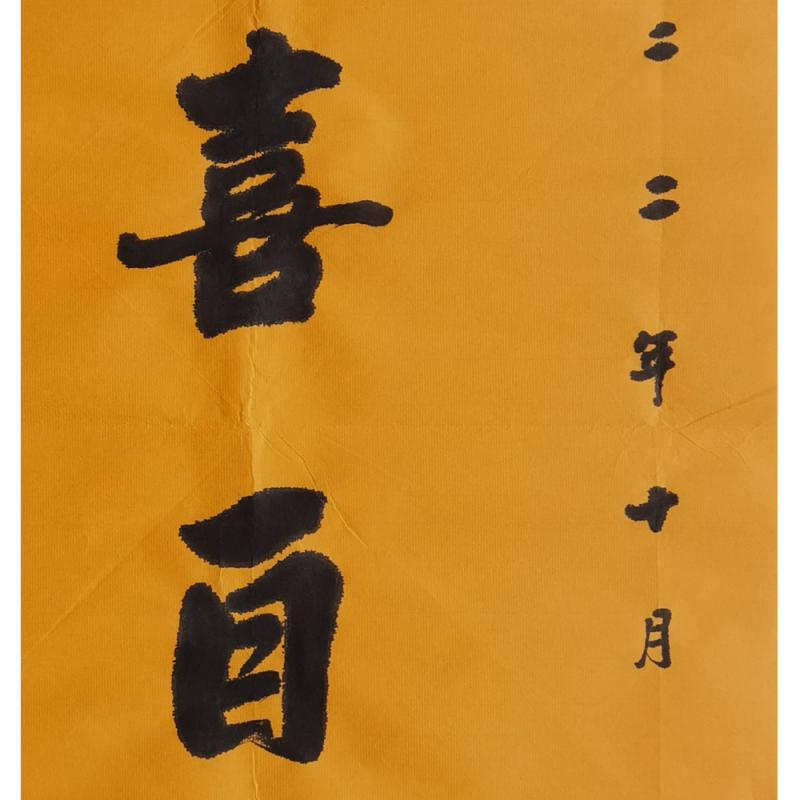 二二年十月
喜百